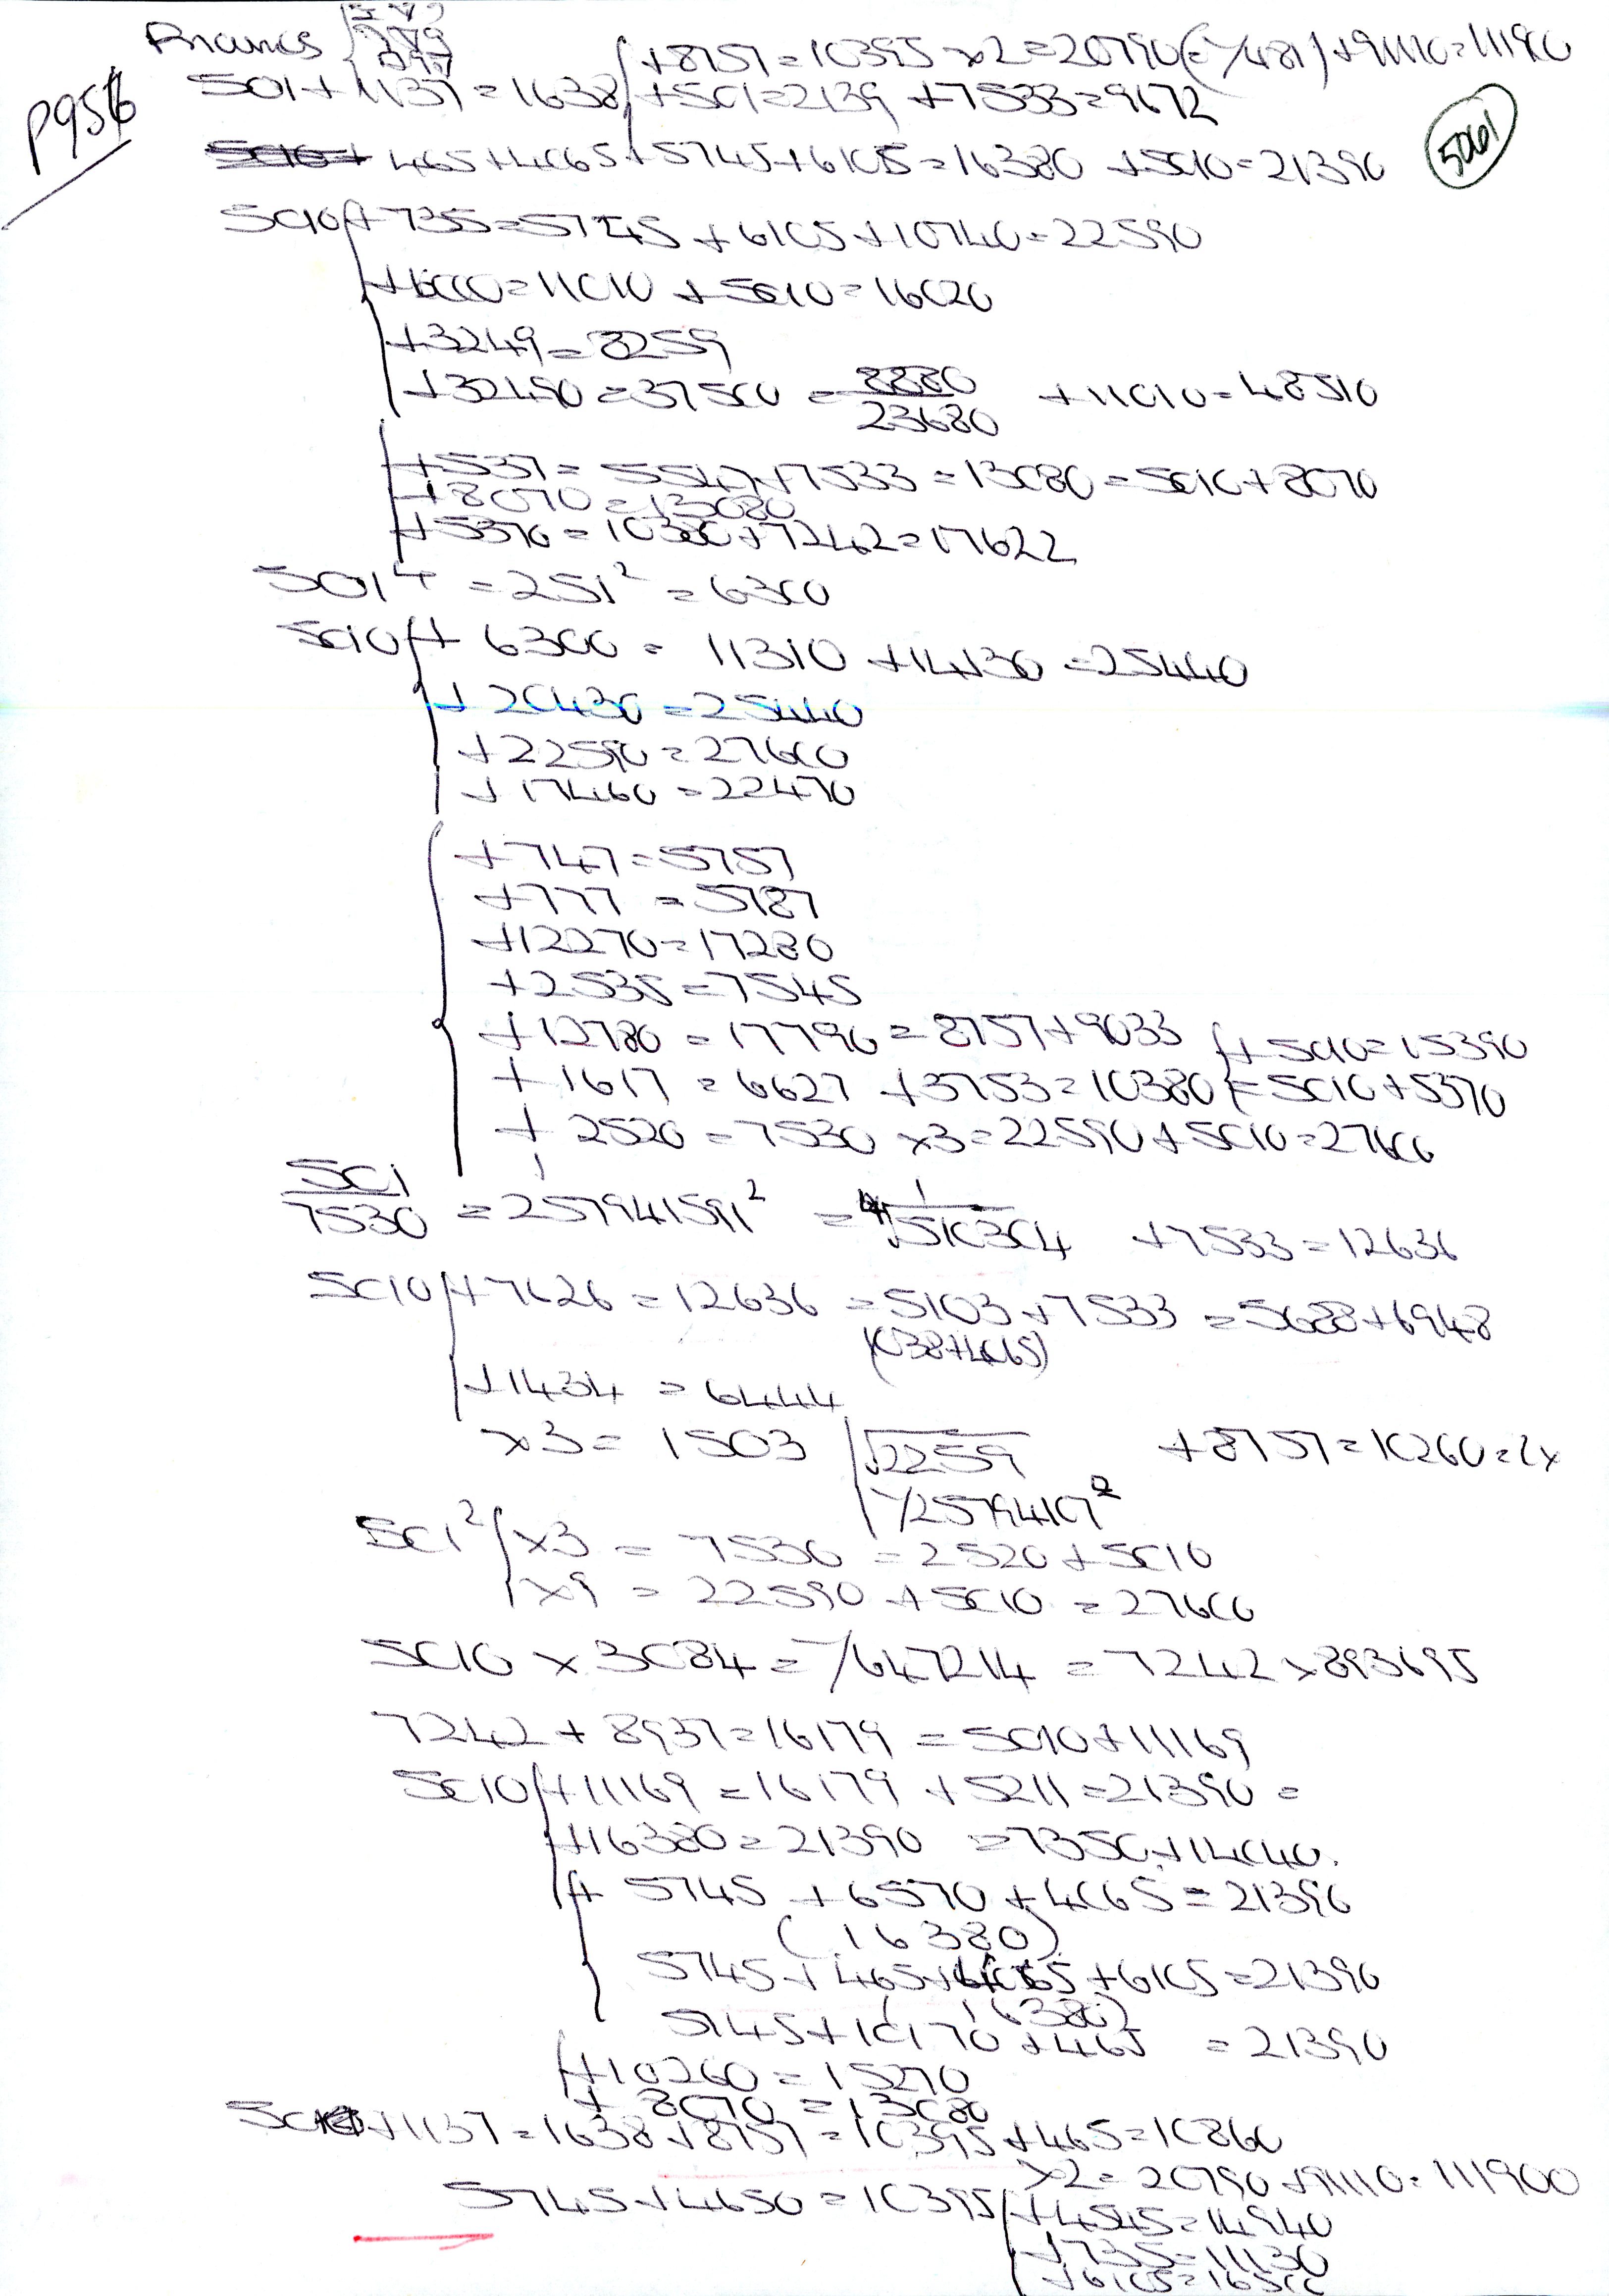 P956
Francis
+8757=10395 ×2=20790(=1/481)+91110=11190
501+1137=1638 +501=2139 +7533=9672
5061
5010+ 465+4065+5745+6105=16380 +5010=21390
5010 +735=5745+6105+10740=22590
+6000=11010 +5010=16020
+3249=8259
+32490=37500=8880/23680 +11010=48510
+537=5547+7533=13080=5010+8070
+8070=13080
+5370=10380+7242=17622
501⁴=251²=6300
5010 +6300=11310+14130=25440
+20430=25440
+22590=27600
+17460=22470
+747=5757
+777=5787
+12270=17280
+2535=7545
+12780=17790=8757+9033 +5010=15390
+1617=6627+3753=10380=5010+5370
+2520=7530 ×3=22590+5010=27600
501/7530=257941591² =4√510304 +7533=12636
5010 +7626=12636=5103+7533=5688+6948
(1038+4065)
+1434=6444
×3=1503 √2259 +8757=10260=2×
1/25794107²
501² ×3=7530=2520+5010
×9=22590+5010=27600
5010×3084=1/647214=7242×893695
7242+8937=16179=5010+11169
5010 +11169=16179+5211=21390=
+16380=21390=7350+14040.
+5745+6570+4065=21390
(16380)
5745+465+4065+6105=21390
(16380)
5745+10170+465=21390
+10260=15270
+8070=13080
501+1137=1638+8757=10395+465=10860
×2=20790+91110=111900
5745+4650=10395 +4545=14940
+735=11130
+6105=16500